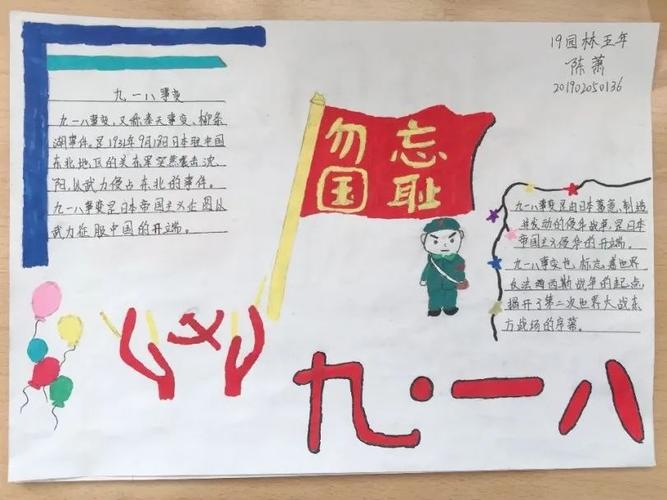 九·一八事变
九一八事变，又称奉天事变、柳条
湖事件。是1931年9月18日日本驻中国
东北地区的关东军突然袭击沈
阳，以武力侵占东北的事件。
九一八事变是日本帝国主义企图以
武力征服中国的开端。
勿忘
国耻
19园林五年
陈萧
201902050136
九一八事变是由日本蓄意制造
并发动的侵华战争，是日本
帝国主义侵华的开端。
九一八事变也标志着世界
反法西斯战争的起点，
揭开了第二次世界大战东
方战场的序幕。
九·一八